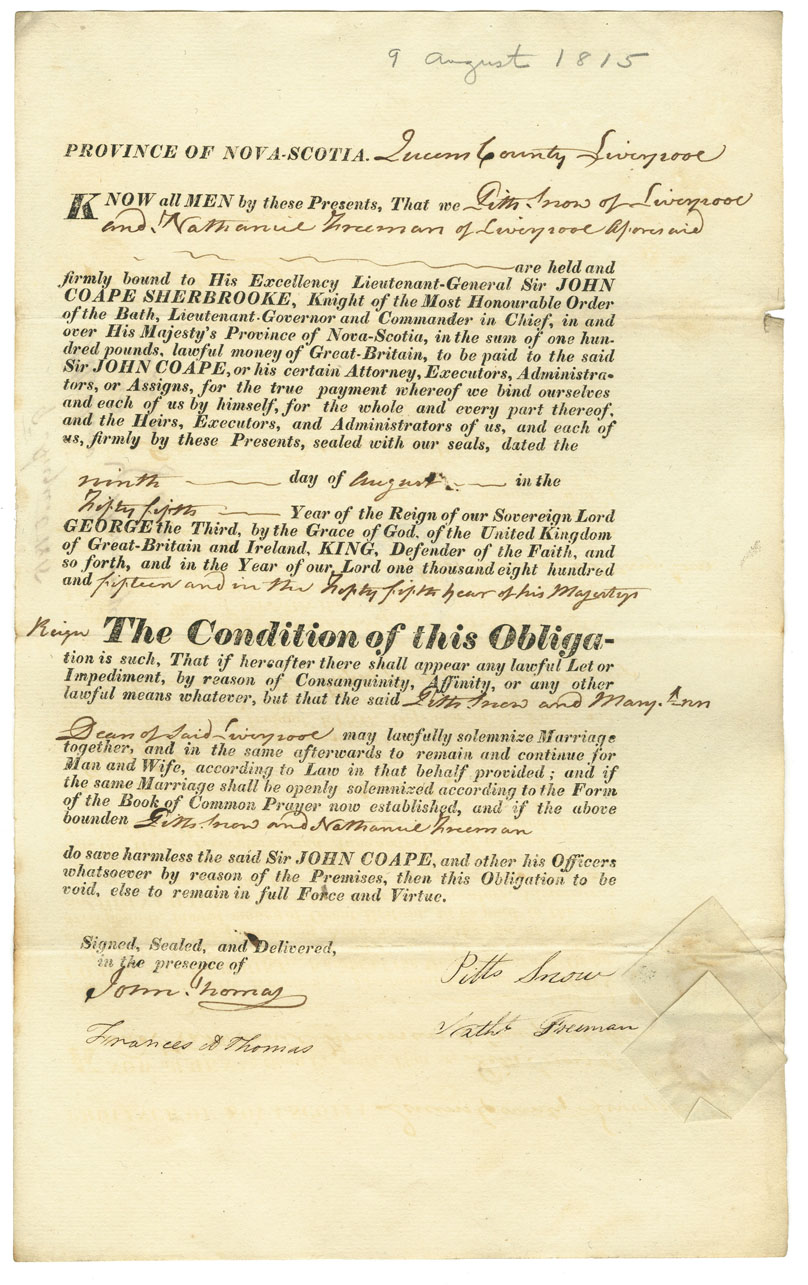 9 August 1815
PROVINCE OF NOVA-SCOTIA. Queens County Liverpool
KNOW all MEN by these Presents, That we Pitts Snow of Liverpool
and Nathaniel Freeman of Liverpool Aforesaid
are held and
firmly bound to His Excellency Lieutenant-General Sir JOHN
COAPE SHERBROOKE, Knight of the Most Honourable Order
of the Bath, Lieutenant-Governor and Commander in Chief, in and
over His Majesty's Province of Nova-Scotia, in the sum of one hun-
dred pounds, lawful money of Great-Britain, to be paid to the said
Sir JOHN COAPE, or his certain Attorney, Executors, Administra-
tors, or Assigns, for the true payment whereof we bind ourselves
and each of us by himself, for the whole and every part thereof,
and the Heirs, Executors, and Administrators of us, and each of
us, firmly by these Presents, sealed with our seals, dated the
ninth day of August in the
Fifty fifth Year of the Reign of our Sovereign Lord
GEORGE the Third, by the Grace of God, of the United Kingdom
of Great-Britain and Ireland, KING, Defender of the Faith, and
so forth, and in the Year of our Lord one thousand eight hundred
and fifteen and in the Fifty fifth year of his Majestys
Reign The Condition of this Obliga-
tion is such, That if hereafter there shall appear any lawful Let or
Impediment, by reason of Consanguinity, Affinity, or any other
lawful means whatever, but that the said Pitts Snow and Mary Ann
Dean of Said Liverpool may lawfully solemnize Marriage
together, and in the same afterwards to remain and continue for
Man and Wife, according to Law in that behalf provided; and if
the same Marriage shall be openly solemnized according to the Form
of the Book of Common Prayer now established, and if the above
bounden Pitts Snow and Nathaniel Freeman
do save harmless the said Sir JOHN COAPE, and other his Officers
whatsoever by reason of the Premises, then this Obligation to be
void, else to remain in full Force and Virtue.
Signed, Sealed, and Delivered,
in the presence of
John Thomas
Pitts Snow
Frances A Thomas
Nathl Freeman